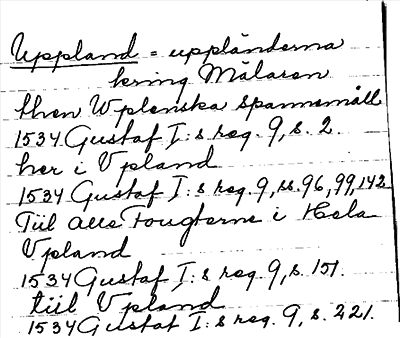 Uppland = uppländerna
kring Mälaren
then Wplenska spannemåll
1534 Gustaf I:s reg. 9, s. 2.
her i Vpland
1534 Gustaf I:s reg. 9, ss. 96, 99, 142
Tiil alla Fougterne i Hela
Vpland
1534 Gustaf I:s reg. 9, s. 151.
tiil Vpland
1534 Gustaf I:s reg. 9, s. 221.